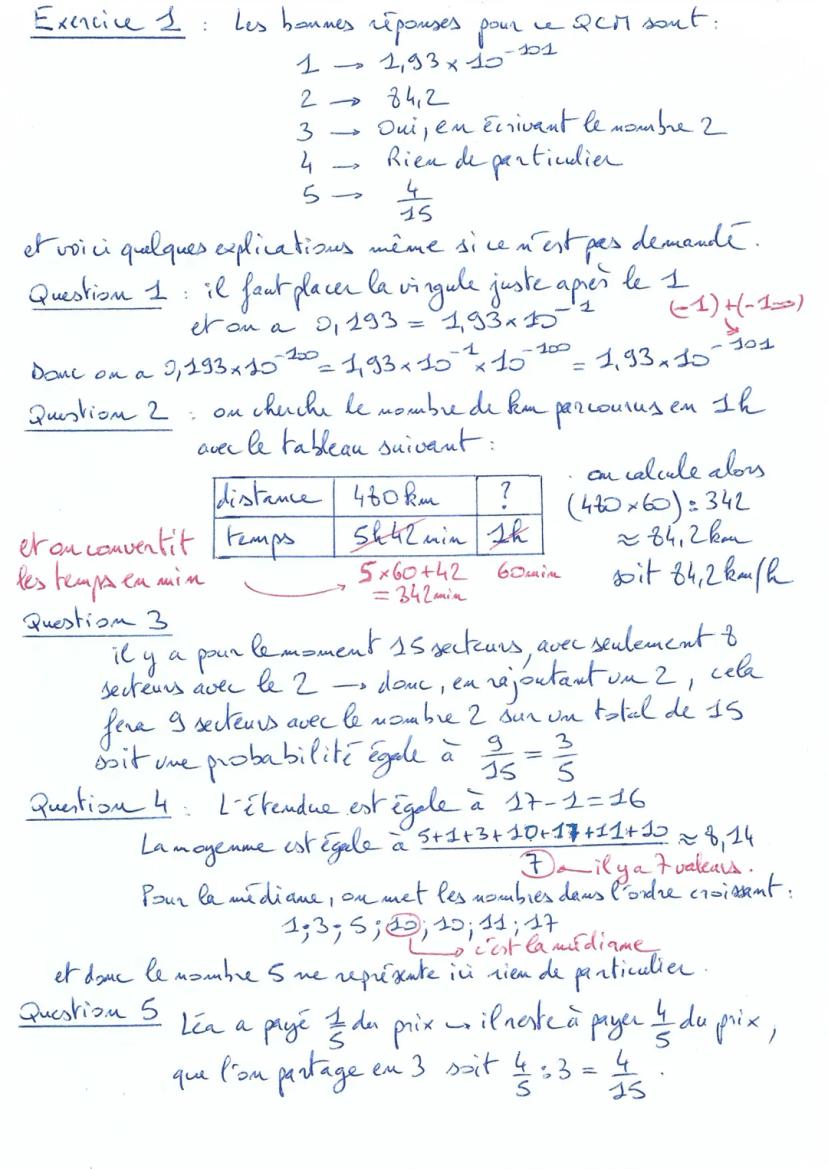 Exercice 1 : Les bonnes réponses pour ce QCM sont :
1 → 1,93 × 10⁻¹⁰¹
2 → 84,2
3 → Oui, en écrivant le nombre 2
4 → Rien de particulier
5 → 4/15
et voici quelques explications même si ce n'est pas demandé.
Question 1 : il faut placer la virgule juste après le 1
et on a 0,193 = 1,93 × 10⁻¹
(-1)+(-100)
Donc on a 0,193 × 10⁻¹⁰⁰ = 1,93 × 10⁻¹ × 10⁻¹⁰⁰ = 1,93 × 10⁻¹⁰¹
Question 2 : on cherche le nombre de km parcourus en 1h
avec le tableau suivant :
distance 480 km ?
temps 5h42min 1h
et on convertit
les temps en min
5×60+42 60min
= 342min
on calcule alors
(480×60) : 342
≈ 84,2 km
soit 84,2 km/h
Question 3
il y a pour le moment 15 secteurs, avec seulement 8
secteurs avec le 2 → donc, en rajoutant un 2, cela
fera 9 secteurs avec le nombre 2 sur un total de 15
soit une probabilité égale à 9/15 = 3/5
Question 4 : L'étendue est égale à 17-1=16
La moyenne est égale à (5+1+3+10+17+11+10)/7 ≈ 8,14
il y a 7 valeurs.
Pour la médiane, on met les nombres dans l'ordre croissant :
1 ; 3 ; 5 ; 10 ; 10 ; 11 ; 17
→ c'est la médiane
et donc le nombre 5 ne représente ici rien de particulier.
Question 5 Léa a payé 1/5 du prix → il reste à payer 4/5 du prix,
que l'on partage en 3 soit 4/5 : 3 = 4/15.